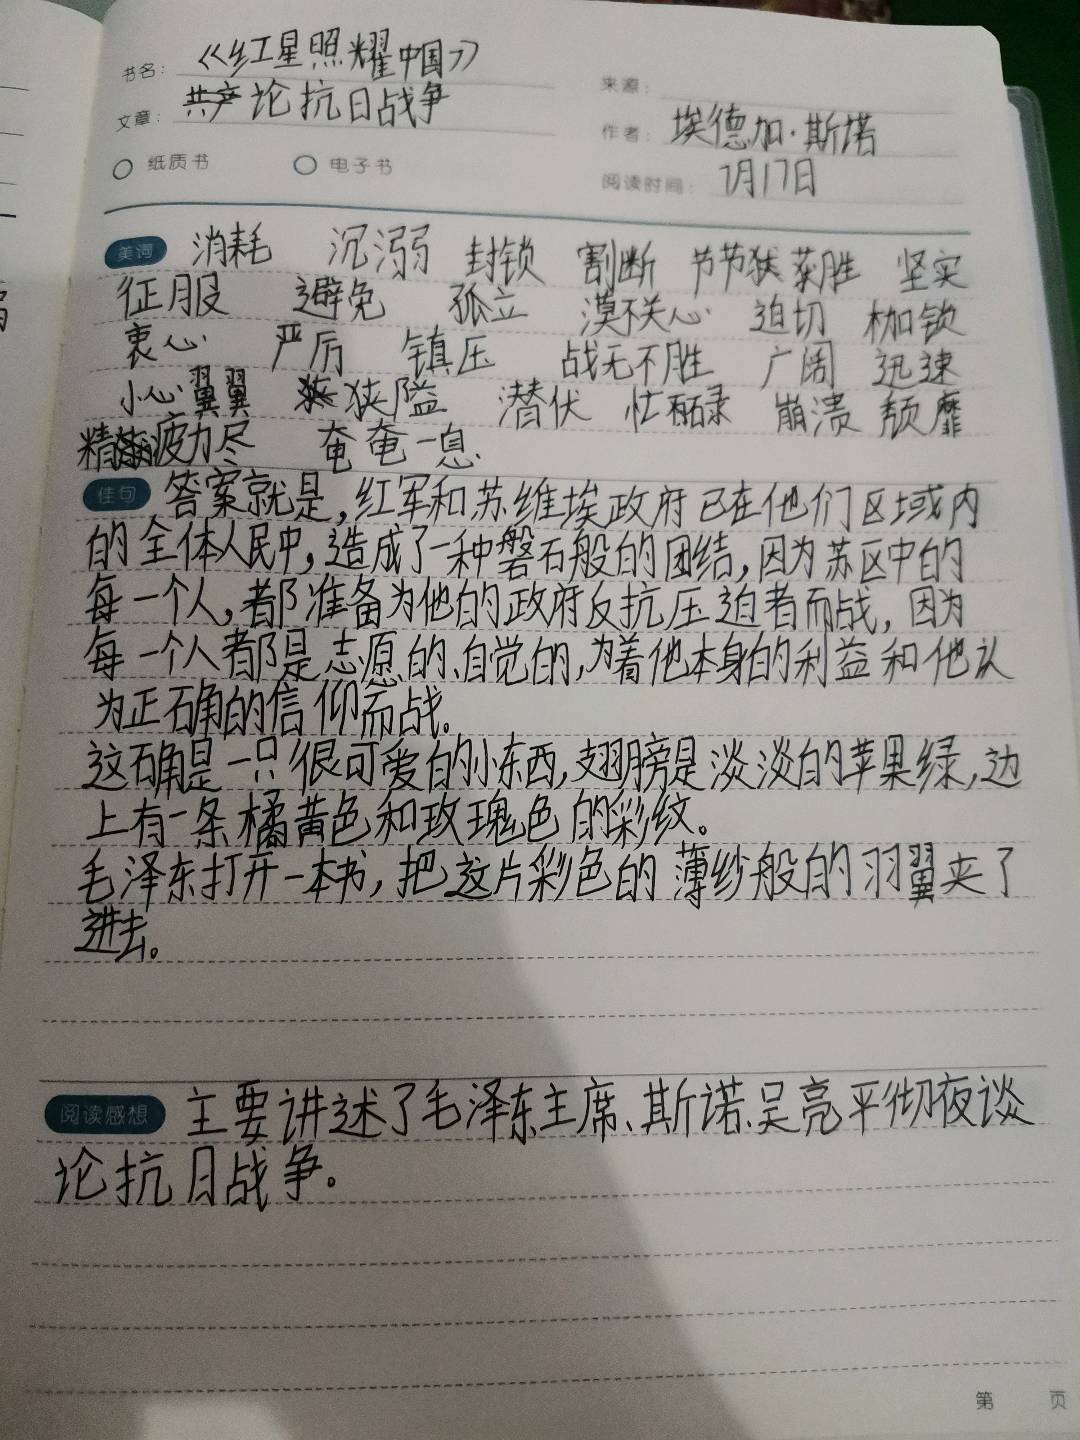 书名：《红星照耀中国》
来源：
文章：论抗日战争
作者：埃德加·斯诺
纸质书 电子书
阅读时间：7月17日
美词 消耗 沉溺 封锁 割断 节节获胜 坚实
征服 避免 孤立 漠不关心 迫切 枷锁
衷心 严厉 镇压 战无不胜 广阔 迅速
小心翼翼 狭隘 潜伏 忙碌 崩溃 颓靡
精疲力尽 奄奄一息
佳句 答案就是，红军和苏维埃政府已在他们区域内
的全体人民中，造成了一种磐石般的团结，因为苏区中的
每一个人，都准备为他的政府反抗压迫者而战，因为
每一个人都是志愿的、自觉的，为着他本身的利益和他认
为正确的信仰而战。
这确是一只很可爱的小东西，翅膀是淡淡的苹果绿，边
上有一条橘黄色和玫瑰色的彩纹。
毛泽东打开一本书，把这片彩色的薄纱般的羽翼夹了
进去。
阅读感想 主要讲述了毛泽东主席、斯诺、吴亮平彻夜谈
论抗日战争。
第 页